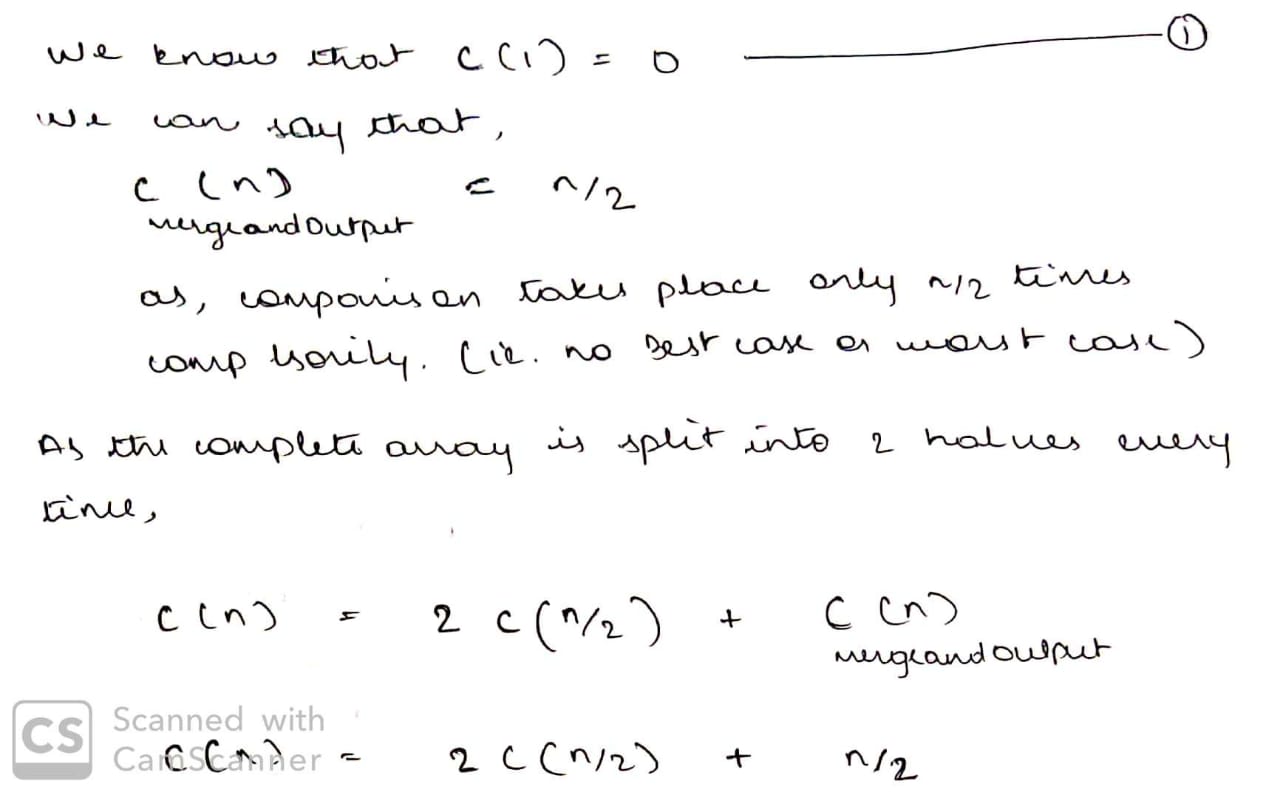 we know that C(1) = 0 ——— ①
we can say that,
C mergeandOutput (n) = n/2
as, comparison takes place only n/2 times
compulsorily. (ie. no Best case or worst case)
As the complete array is split into 2 halves every
time,
C(n) = 2 C(n/2) + C mergeandoutput (n)
C(n) = 2 C(n/2) + n/2
CS Scanned with
CamScanner